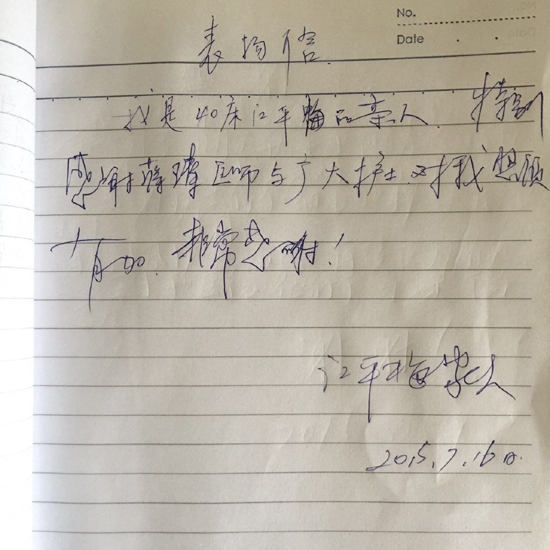 No.
Date . .
表扬信
我是40床江平梅的家人. 特别
感谢蒋 医师与广大护士.对我 照顾
有加. 非常感谢!
江平梅家人
2015.7.16日.